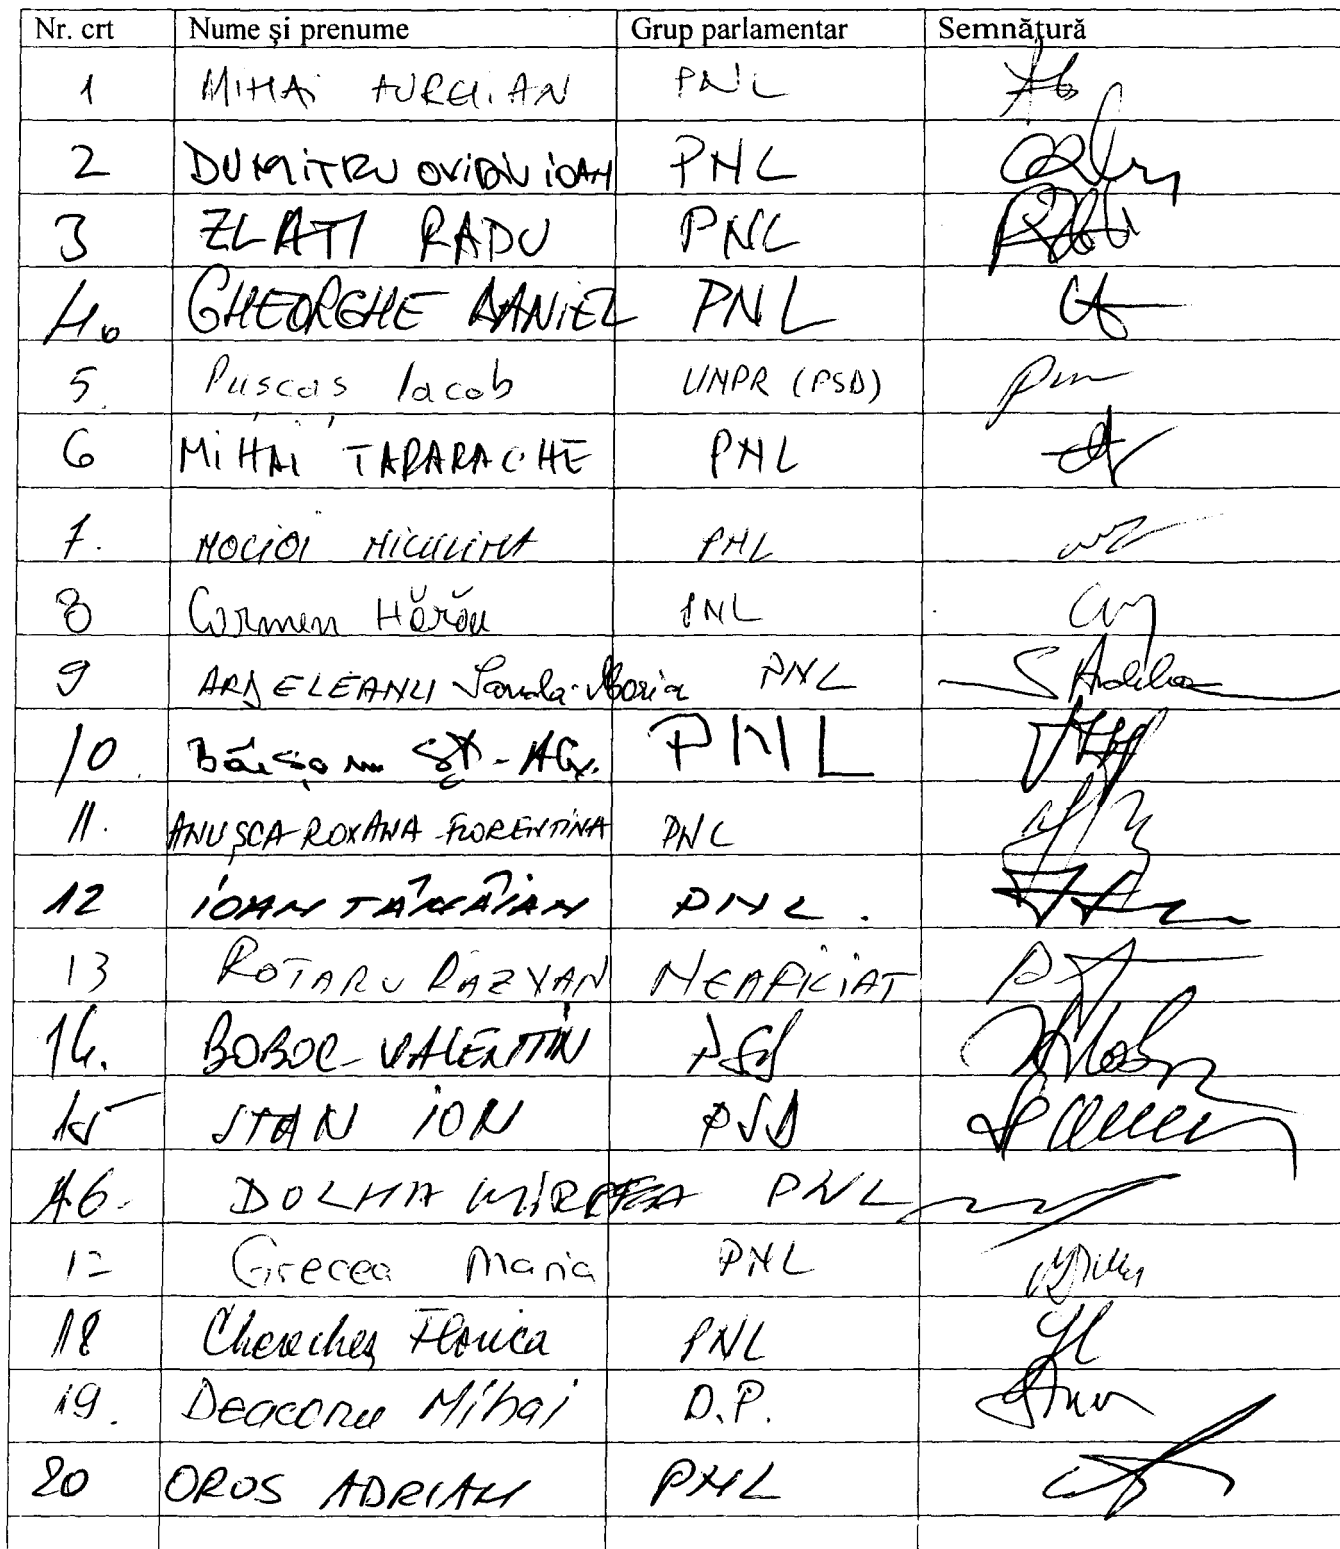 Nr. crt Nume și prenume Grup parlamentar Semnătură
1 MIHAI AURELIAN PNL
2 DUMITRU OVIDIU IOAN PNL
3 ZLATI RADU PNL
4. GHEORGHE DANIEL PNL
5. Pușcaș Iacob UNPR (PSD)
6 MIHAI TARARACHE PNL
7. MOCIOI NICULINA PNL
8 Carmen Hărău PNL
9 ARDELEANU Sanda-Maria PNL
10 PNL
11. ANUȘCA-ROXANA-FLORENTINA PNL
12 IOAN TĂNĂIAN PNL.
13 ROTARU RĂZVAN NEAFILIAT
14. BOBOC VALENTIN PSD
15 STAN ION PSD
16. DOLHA MIRCEA PNL
17 Grecea Maria PNL
18 Cherecheș Florica PNL
19. Deaconu Mihai D.P.
20 OROS ADRIAN PNL